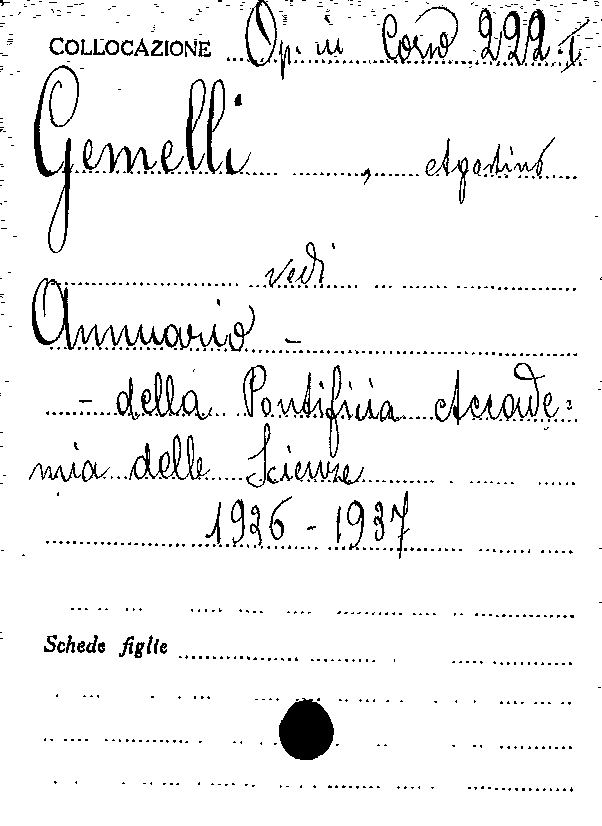 COLLOCAZIONE Op. in Corso 222.I
Gemelli , Agostino
vedi
Annuario -
- della Pontificia Accade=
mia delle Scienze
1936 - 1937
Schede figlie